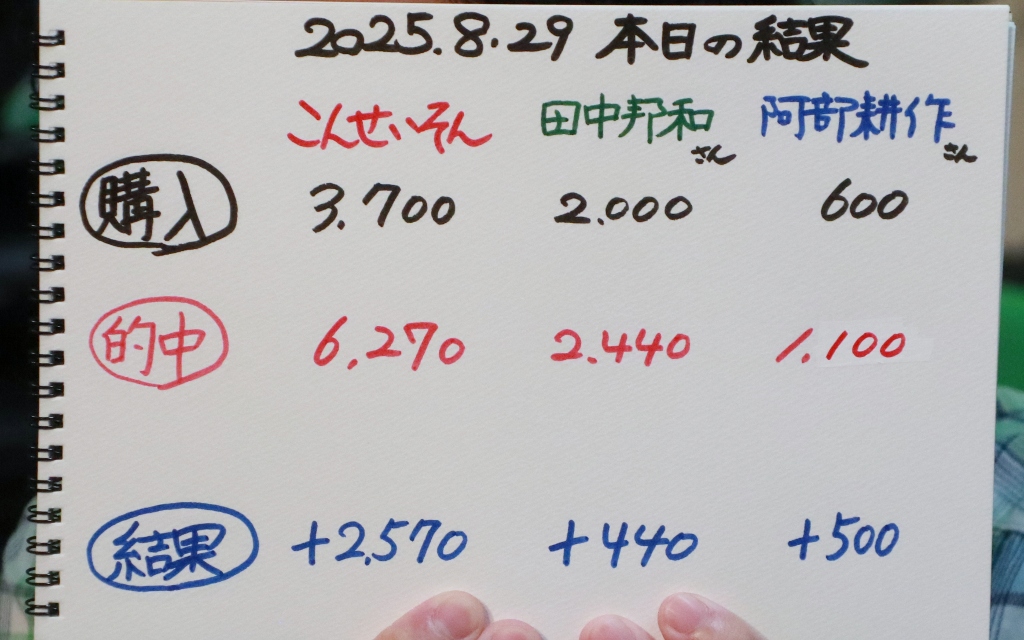 2025.8.29 本日の結果
こんせいそん 田中邦和さん 阿部耕作さん
購入 3.700 2.000 600
的中 6.270 2.440 1.100
結果 +2.570 +440 +500